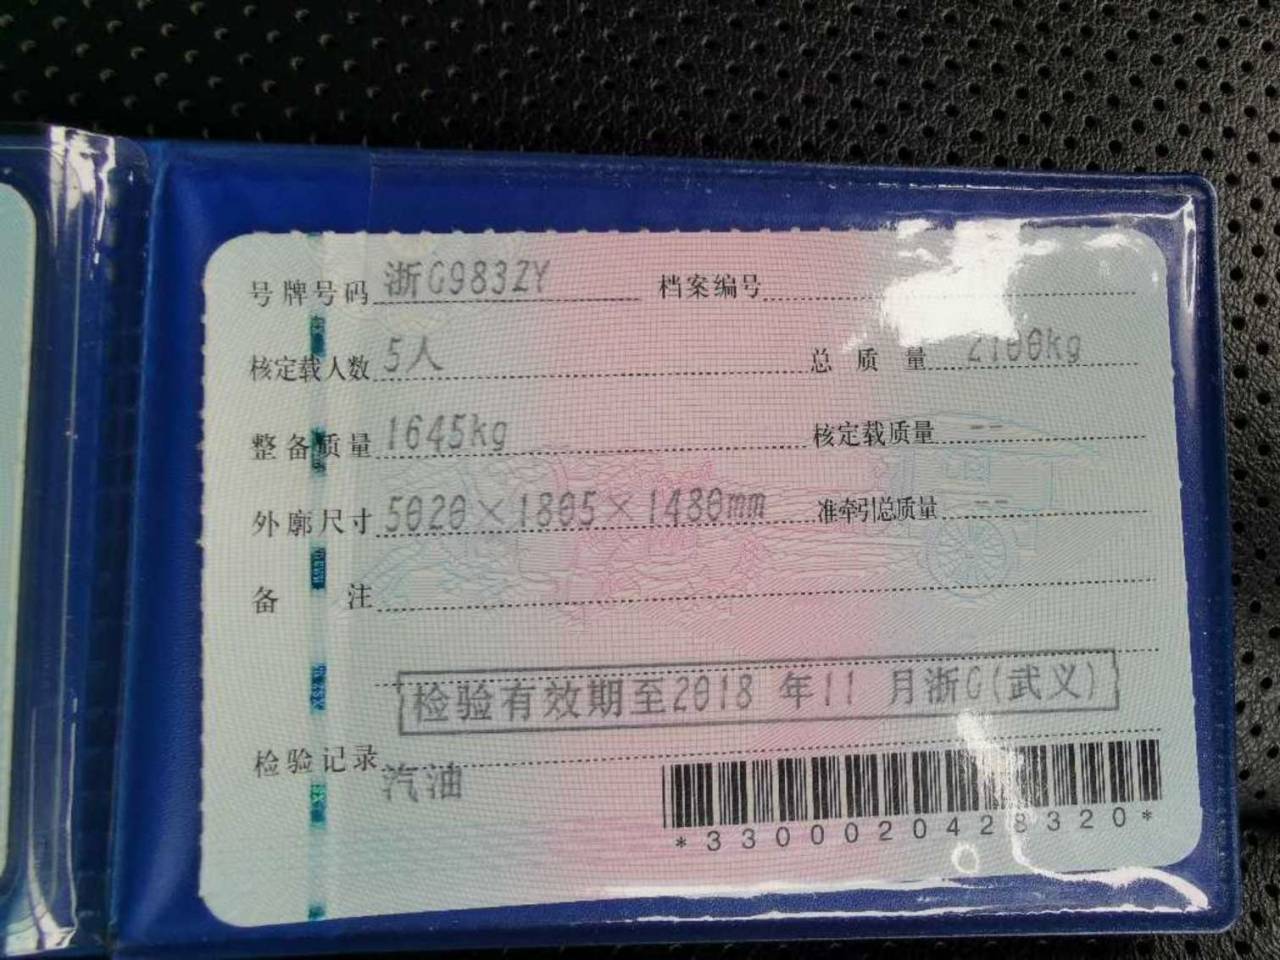 号牌号码 浙G983ZY 档案编号
核定载人数 5人 总质量 2100kg
整备质量 1645kg 核定载质量 --
外廓尺寸 5020×1805×1480mm 准牵引总质量 --
备注
检验有效期至2018 年11 月浙G(武义)
检验记录
汽油
*3300020428320*